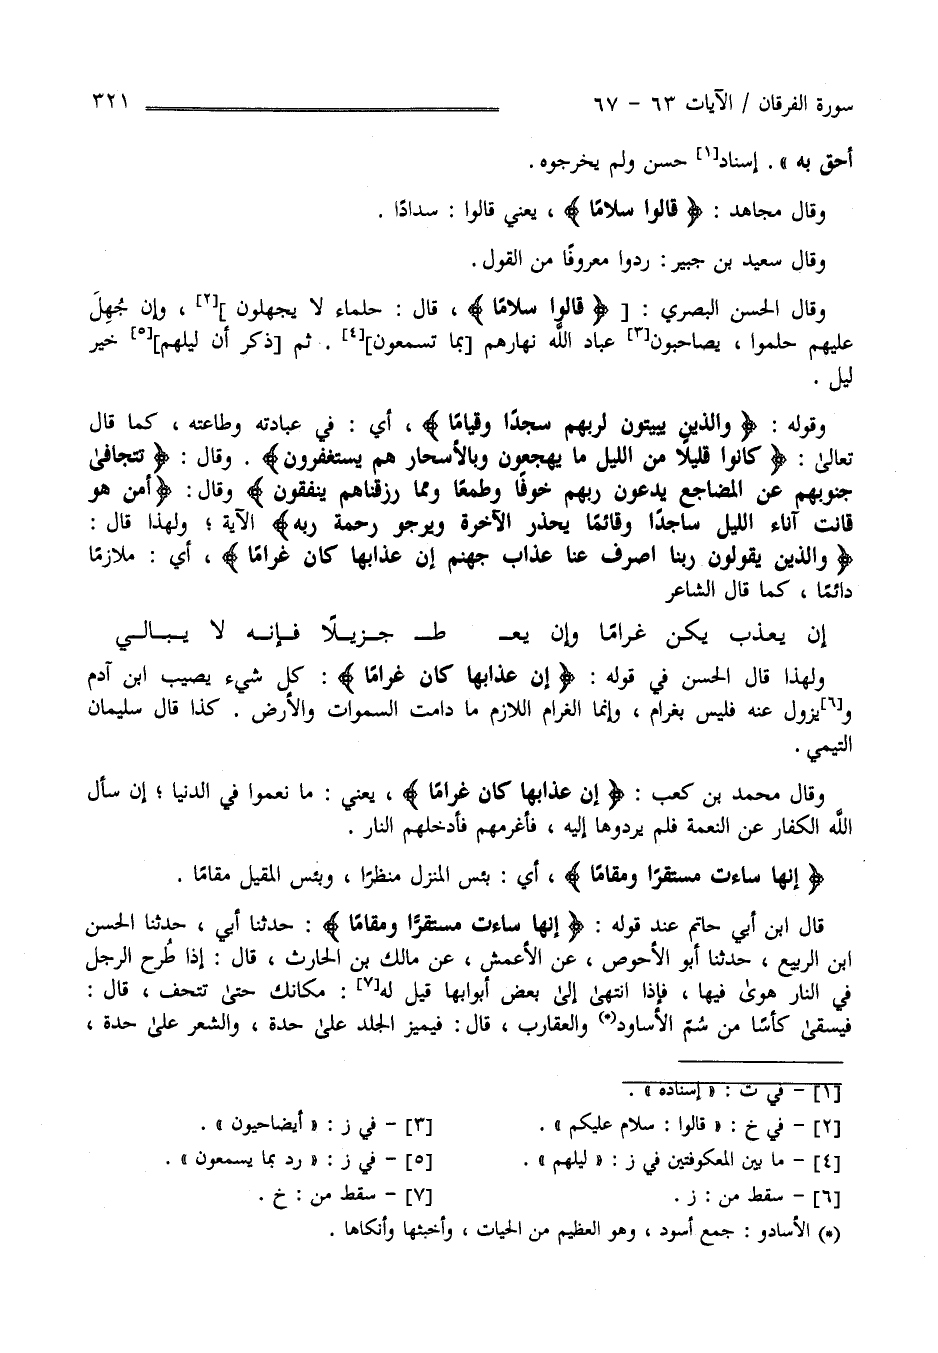 سورة الفرقان / الآيات ٦٣ - ٦٧ ٣٢١
أحق به » . إسناد[١] حسن ولم يخرجوه .
وقال مجاهد : ﴿ قالوا سلامًا ﴾ ، يعني قالوا : سدادًا .
وقال سعيد بن جبير : ردوا معروفًا من القول .
وقال الحسن البصري : [ ﴿ قالوا سلامًا ﴾ ، قال : حلماء لا يجهلون ][٢] ، وإن جُهِلَ
عليهم حلموا ، يصاحبون[٣] عباد اللَّه نهارهم [بما تسمعون][٤] . ثم [ذكر أن ليلهم][٥] خير
ليل .
وقوله : ﴿ والذين يبيتون لربهم سجدًا وقيامًا ﴾ ، أي : في عبادته وطاعته ، كما قال
تعالىٰ : ﴿ كانوا قليلًا من الليل ما يهجعون وبالأسحار هم يستغفرون﴾ . وقال : ﴿ تتجافىٰ
جنوبهم عن المضاجع يدعون ربهم خوفًا وطمعًا ومما رزقناهم ينفقون ﴾ وقال: ﴿أمن هو
قانت آناء الليل ساجدًا وقائمًا يحذر الآخرة ويرجو رحمة ربه﴾ الآية ؛ ولهذا قال :
﴿ والذين يقولون ربنا اصرف عنا عذاب جهنم إن عذابها كان غرامًا ﴾ ، أي : ملازمًا
دائمًا ، كما قال الشاعر
إن يعذب يكن غرامًا وإن يعـ طـ جـزيـلًا فـإنـه لا يـبـالـي
ولهذا قال الحسن في قوله : ﴿ إن عذابها كان غرامًا ﴾ : كل شيء يصيب ابن آدم
و[٦]يزول عنه فليس بغرام ، وإنما الغرام اللازم ما دامت السموات والأرض . كذا قال سليمان
التيمي .
وقال محمد بن كعب : ﴿ إن عذابها كان غرامًا ﴾ ، يعني : ما نعموا في الدنيا ؛ إن سأل
اللَّه الكفار عن النعمة فلم يردوها إليه ، فأغرمهم فأدخلهم النار .
﴿ إنها ساءت مستقرًا ومقامًا ﴾ ، أي : بئس المنزل منظرًا ، وبئس المقيل مقامًا .
قال ابن أبي حاتم عند قوله : ﴿ إنها ساءت مستقرًّا ومقامًا ﴾ : حدثنا أبي ، حدثنا الحسن
ابن الربيع ، حدثنا أبو الأحوص ، عن الأعمش ، عن مالك بن الحارث ، قال : إذا طُرح الرجل
في النار هوىٰ فيها ، فإذا انتهىٰ إلىٰ بعض أبوابها قيل له[٧] : مكانك حتىٰ تتحف ، قال :
فيسقىٰ كأسًا من سُمّ الأساود(*) والعقارب ، قال: فيميز الجلد علىٰ حدة ، والشعر علىٰ حدة ،
[١] - في ت : « إسناده » .
[٢] - في خ : « قالوا : سلام عليكم » . [٣] - في ز : « أيضاحيون » .
[٤] - ما بين المعكوفتين في ز : « ليلهم » . [٥] - في ز : « رد بما يسمعون » .
[٦] - سقط من : ز . [٧] - سقط من : خ .
(*) الأسادو : جمع أسود ، وهو العظيم من الحيات ، وأخبثها وأنكاها .